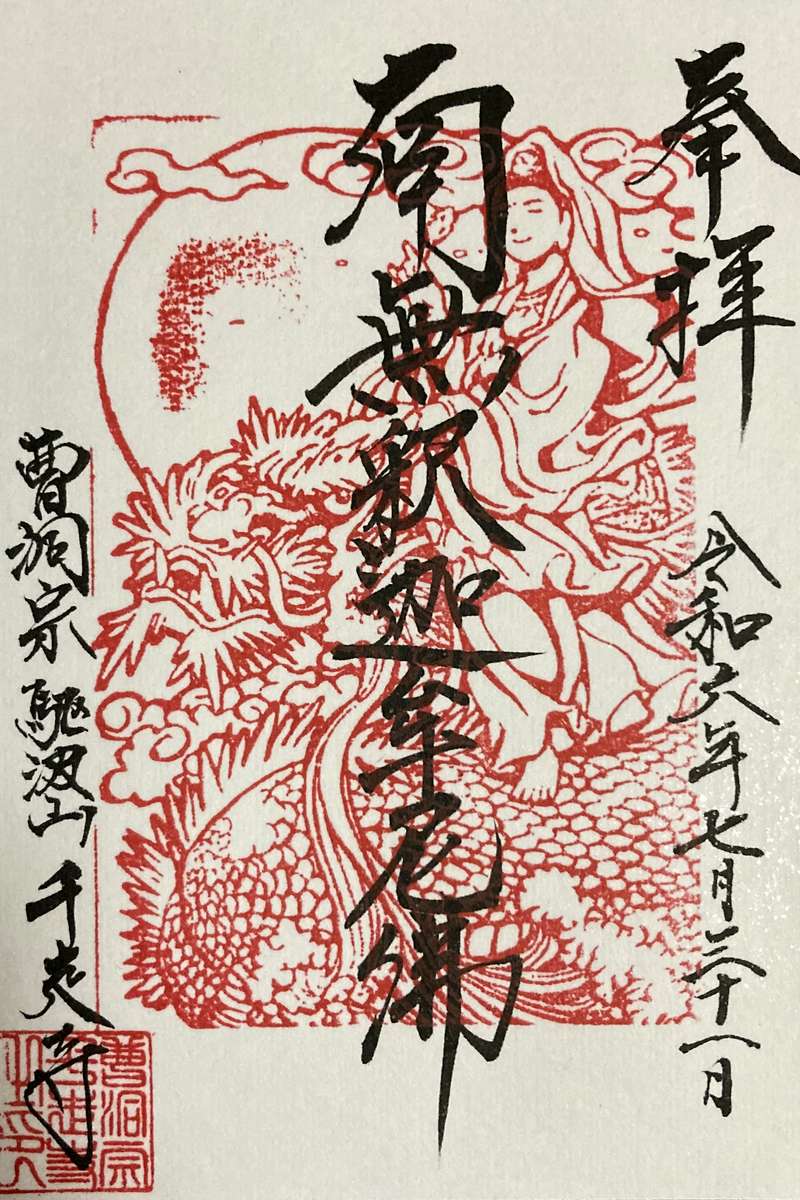 奉拝
令和六年七月三十一日
南無釈迦牟尼佛
曹洞宗 山 千 寺
曹洞宗